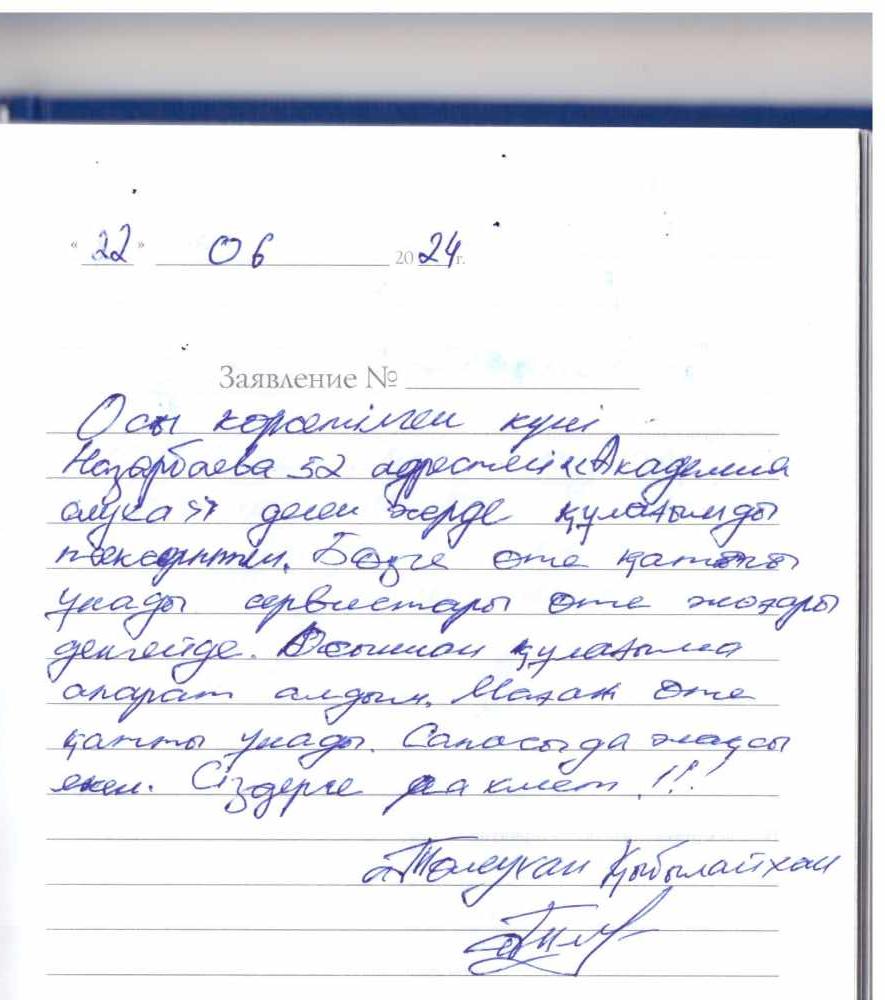 «22» 06 2024г.
Заявление №
Осы көрсетілген күні
Назарбаева 52 адрестегі «Академия
слуха» деген жерде құлағымды
тексерттім. Бізге өте қатты
ұнады сервистары өте жоғары
деңгейде. Осыннан құлағыма
апарат алдым. Маған өте
қатты ұнады. Сапасы да жақсы
екен. Сіздерге рахмет!!!
Төлеухан Құбылайхан